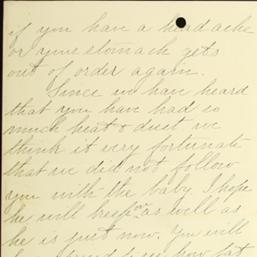 if you have a head ache
or your stomach gets
out of order again.
Since we have heard
that you have had so
much heat & dust we
think it very fortunate
that we did not follow
you with the baby I hope
he will keep on as well as
he is just now. You will
how fat